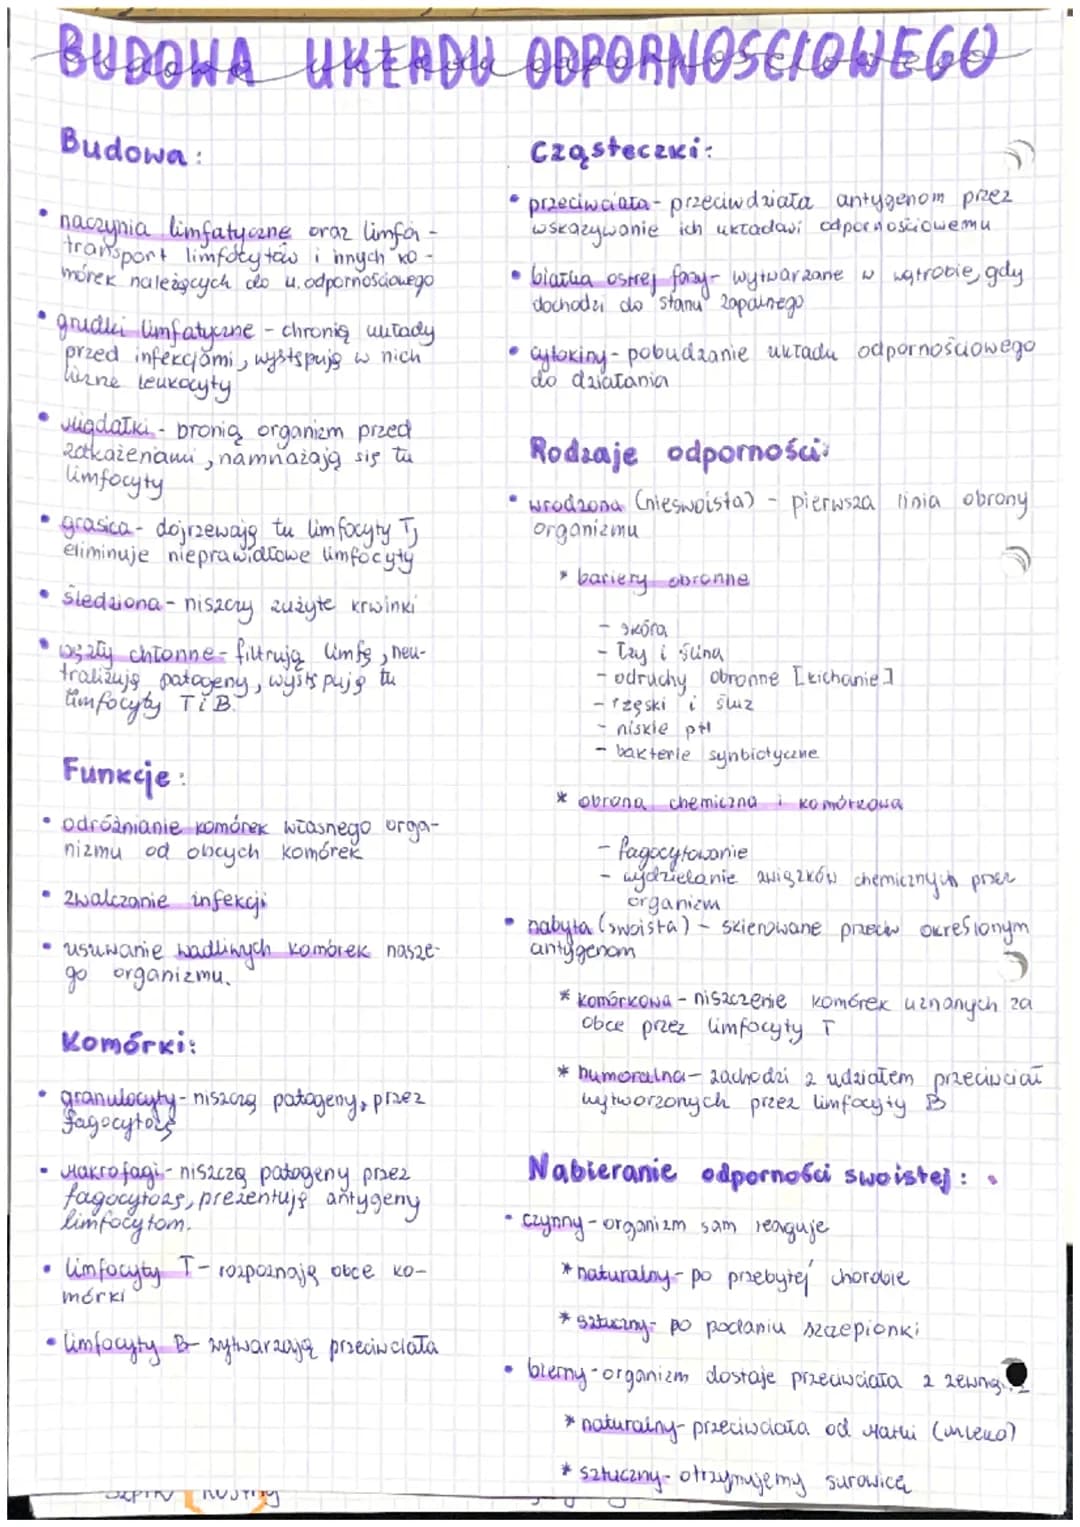 BUDOWA UKŁADU ODPORNOŚCIOWEGO
Budowa układu odpornościowego
Budowa:
• naczynia limfatyczne oraz limfa -
transport limfocytów i innych ko-
mórek należących do u. odpornościowego
• grudki limfatyczne - chronią układy
przed infekcjami, występują w nich
liczne leukocyty
• Migdałki - bronią organizm przed
zakażeniami, namnażają się tu
limfocyty
• grasica - dojrzewają tu limfocyty T,
eliminuje nieprawidłowe limfocyty
• Śledziona - niszczy zużyte krwinki
• węzły chłonne - filtrują limfę, neu-
tralizują patogeny, występują tu
limfocyty T i B.
Funkcje:
• odróżnianie komórek własnego orga-
nizmu od obcych komórek
• zwalczanie infekcji
• usuwanie wadliwych komórek nasze-
go organizmu.
Komórki:
• granulocyty - niszczą patogeny, przez
fagocytozę
• Makrofagi - niszczą patogeny przez
fagocytozę, prezentują antygeny
limfocytom.
• limfocyty T - rozpoznają obce ko-
mórki
• limfocyty B - wytwarzają przeciwciała
Cząsteczki:
• przeciwciała - przeciwdziała antygenom przez
wskazywanie ich układowi odpornościowemu
• białka ostrej fazy - wytwarzane w wątrobie, gdy
dochodzi do stanu zapalnego
• cytokiny - pobudzanie układu odpornościowego
do działania
Rodzaje odporności:
• wrodzona (nieswoista) - pierwsza linia obrony
organizmu
* bariery obronne
- skóra
- łzy i ślina
- odruchy obronne [kichanie]
- rzęski i śluz
- niskie pH
- bakterie synbiotyczne
* obrona chemiczna i komórkowa
- fagocytowanie
- wydzielanie związków chemicznych przez
organizm
• nabyta (swoista) - skierowane przeciw określonym
antygenom
* komórkowa - niszczenie komórek uznanych za
obce przez limfocyty T
* humoralna - zachodzi z udziałem przeciwciał
wytworzonych przez limfocyty B
Nabieranie odporności swoistej:
• czynny - organizm sam reaguje
* naturalny - po przebytej chorobie
* sztuczny - po podaniu szczepionki
• bierny - organizm dostaje przeciwciała z
* naturalny - przeciwciała od Matki (mleko)
* sztuczny - otrzymujemy surowicę